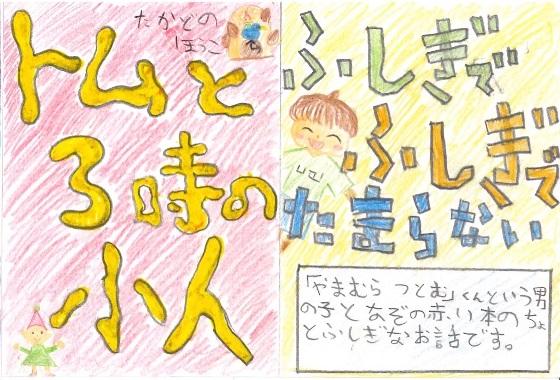 たかどの
ほうこ
トムと
3時の
小人
ふしぎで
ふしぎで
たまらない
「やまむら つとむ」くんという男
の子となぞの赤い本のちょ
とふしぎなお話です。